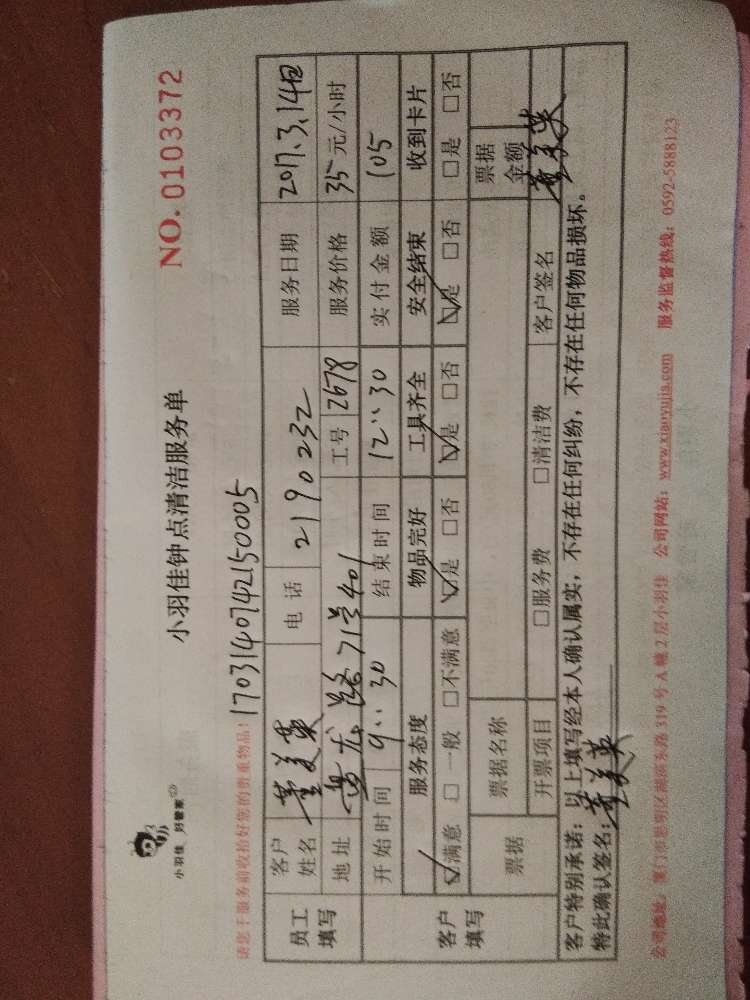 小羽佳 好管家
小羽佳钟点清洁服务单
NO. 0103372
请您于服务前收拾好您的贵重物品! 1703140742150005
员工填写
客户姓名 董美英 电话 2190232 服务日期 2017.3.14日
地址 黄龙路71号401 工号 2678 服务价格 35元/小时
开始时间 9:30 结束时间 12:30 实付金额 105
客户填写
服务态度 物品完好 工具齐全 安全结束 收到卡片
☑满意 □一般 □不满意 ☑是 □否 ☑是 □否 ☑是 □否 □是 □否
票据 票据名称 票据金额
开票项目 □服务费 □清洁费 客户签名 董美英
客户特别承诺:以上填写经本人确认属实,不存在任何纠纷,不存在任何物品损坏。
特此确认签名:董美英
公司地址:厦门市思明区湖滨东路319号A幢2层小羽佳 公司网站:www.xiaoyujia.com 服务监督热线:0592-5888123